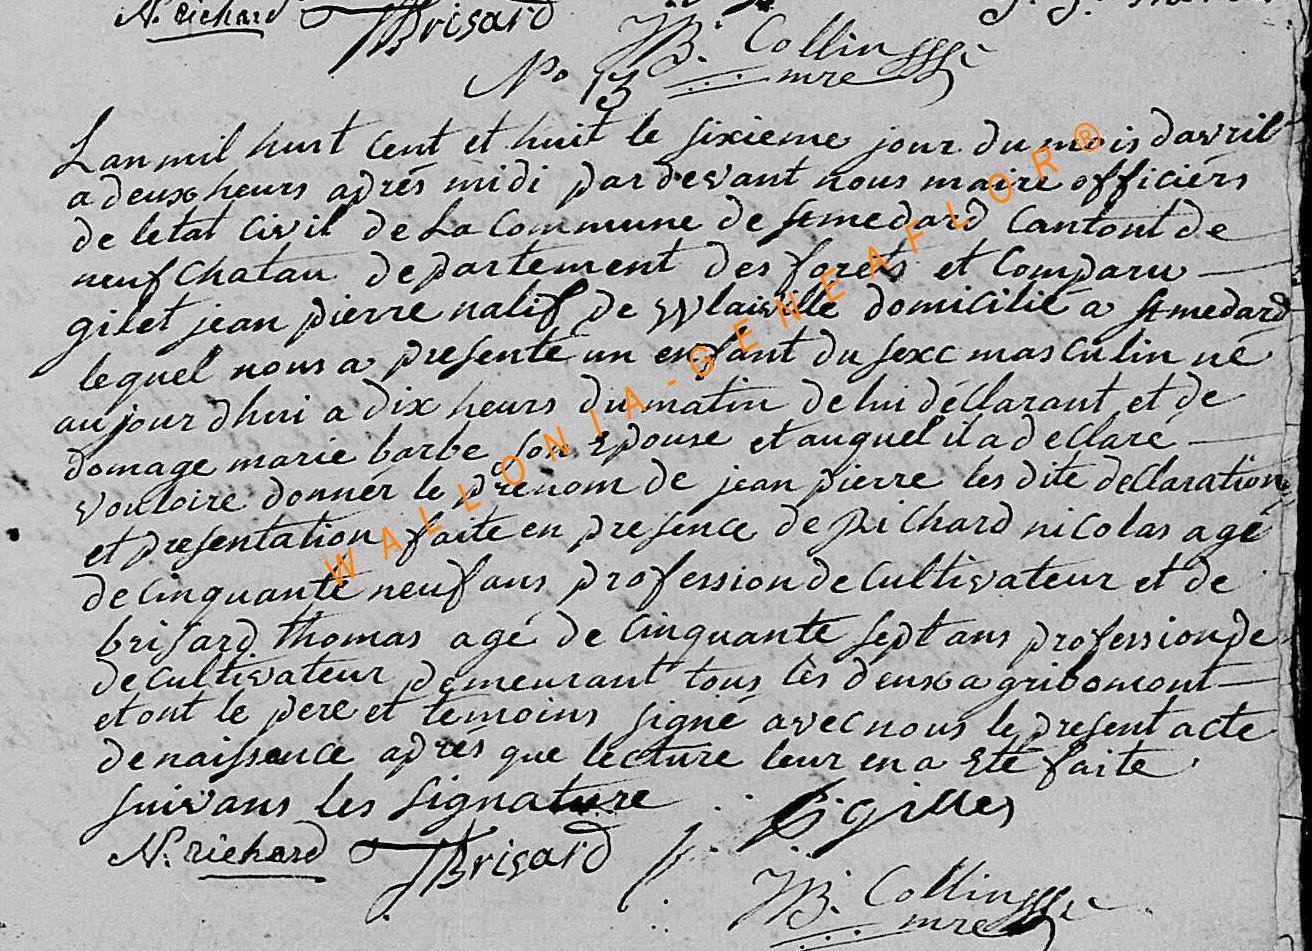 N. richard Brisard JB. Collin
mre
No 13
Lan mil huit cent et huit le sixieme jour du mois davril
a deux heurs aprés midi par devant nous maire officiérs
de letat civil de La Commune de st medard Cantont de
neufchatau departement des forets et Comparu
gilet jean pierre natif de Wlaiville domicilié a st medard
lequel nous a presenté un enfant du sexe masculin né
aujourdhui a dix heurs du matin de lui déClarant et de
domage marie barbe son Epouse et auquel il a deClaré
vouloire donnér le prénom de jean pierre les dite declaration
et presentation faite en presence de Richard nicolas agé
de Cinquante neuf ans profession de Cultivateur et de
brisard thomas agé de Cinquante sept ans profession de
de Cultivateur demeurant tous lès deux a gribomont
et ont le pere et temoins signé avec nous le present acte
de naissence aprés que lecture leur en a Eté faite
suivans les signature
N. richard Brisard j. p gilles
JB. Collin
mre
WALLONIA-GENEAFLOR®